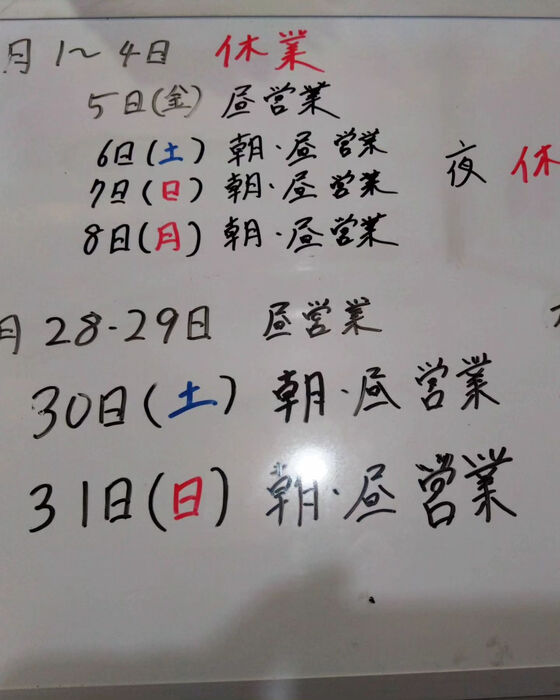 月 1〜4日 休業
5日(金) 昼営業
6日(土) 朝・昼営業
7日(日) 朝・昼営業 夜 休
8日(月) 朝・昼営業
月 28-29日 昼営業
30日(土) 朝・昼営業
31日(日) 朝・昼営業